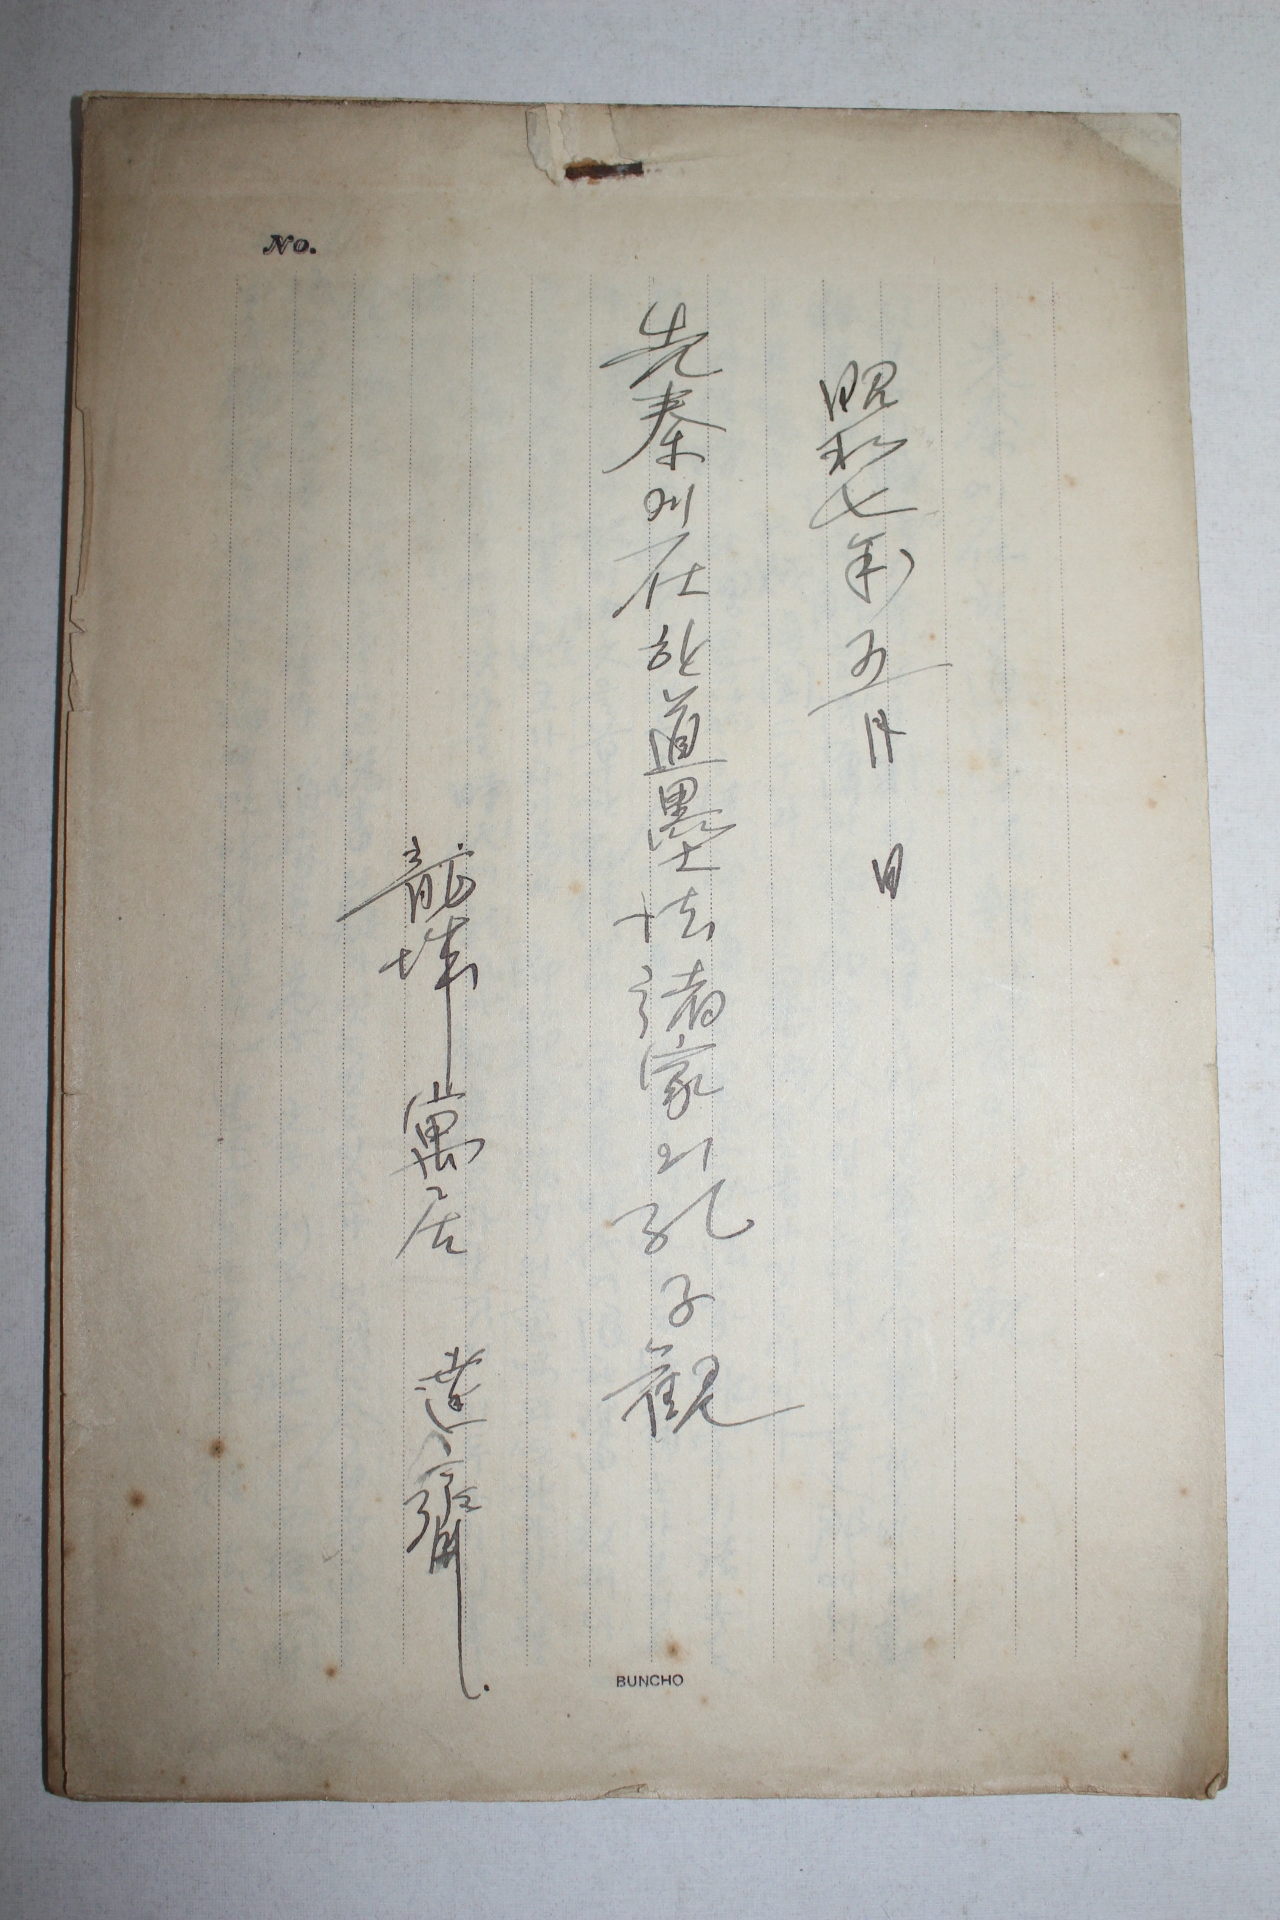 No.
昭和七年五月 日
先秦에 在한 道墨法諸家의 孔子觀
龍塘寓居 達齋
BUNCHO